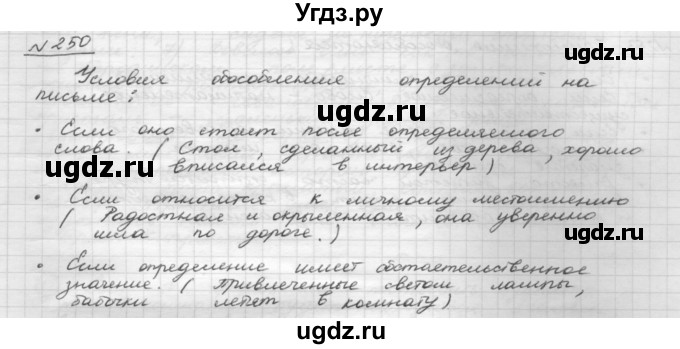 Угдз.ру
N 250
Условия обособления определений на
письме:
• Если оно стоит после определяемого
слова. (Стол, сделанный из дерева, хорошо
вписался в интерьер)
• Если относится к личному местоимению
(Радостная и окрыленная, она уверенно
шла по дороге.)
• Если определение имеет обстоятельственное
значение. (Привлеченные светом лампы,
бабочки летят в комнату)
ugdz.ru
ugdz.ru
ugdz.ru
ugdz.ru
ugdz.ru
ugdz.ru
ugdz.ru
ugdz.ru